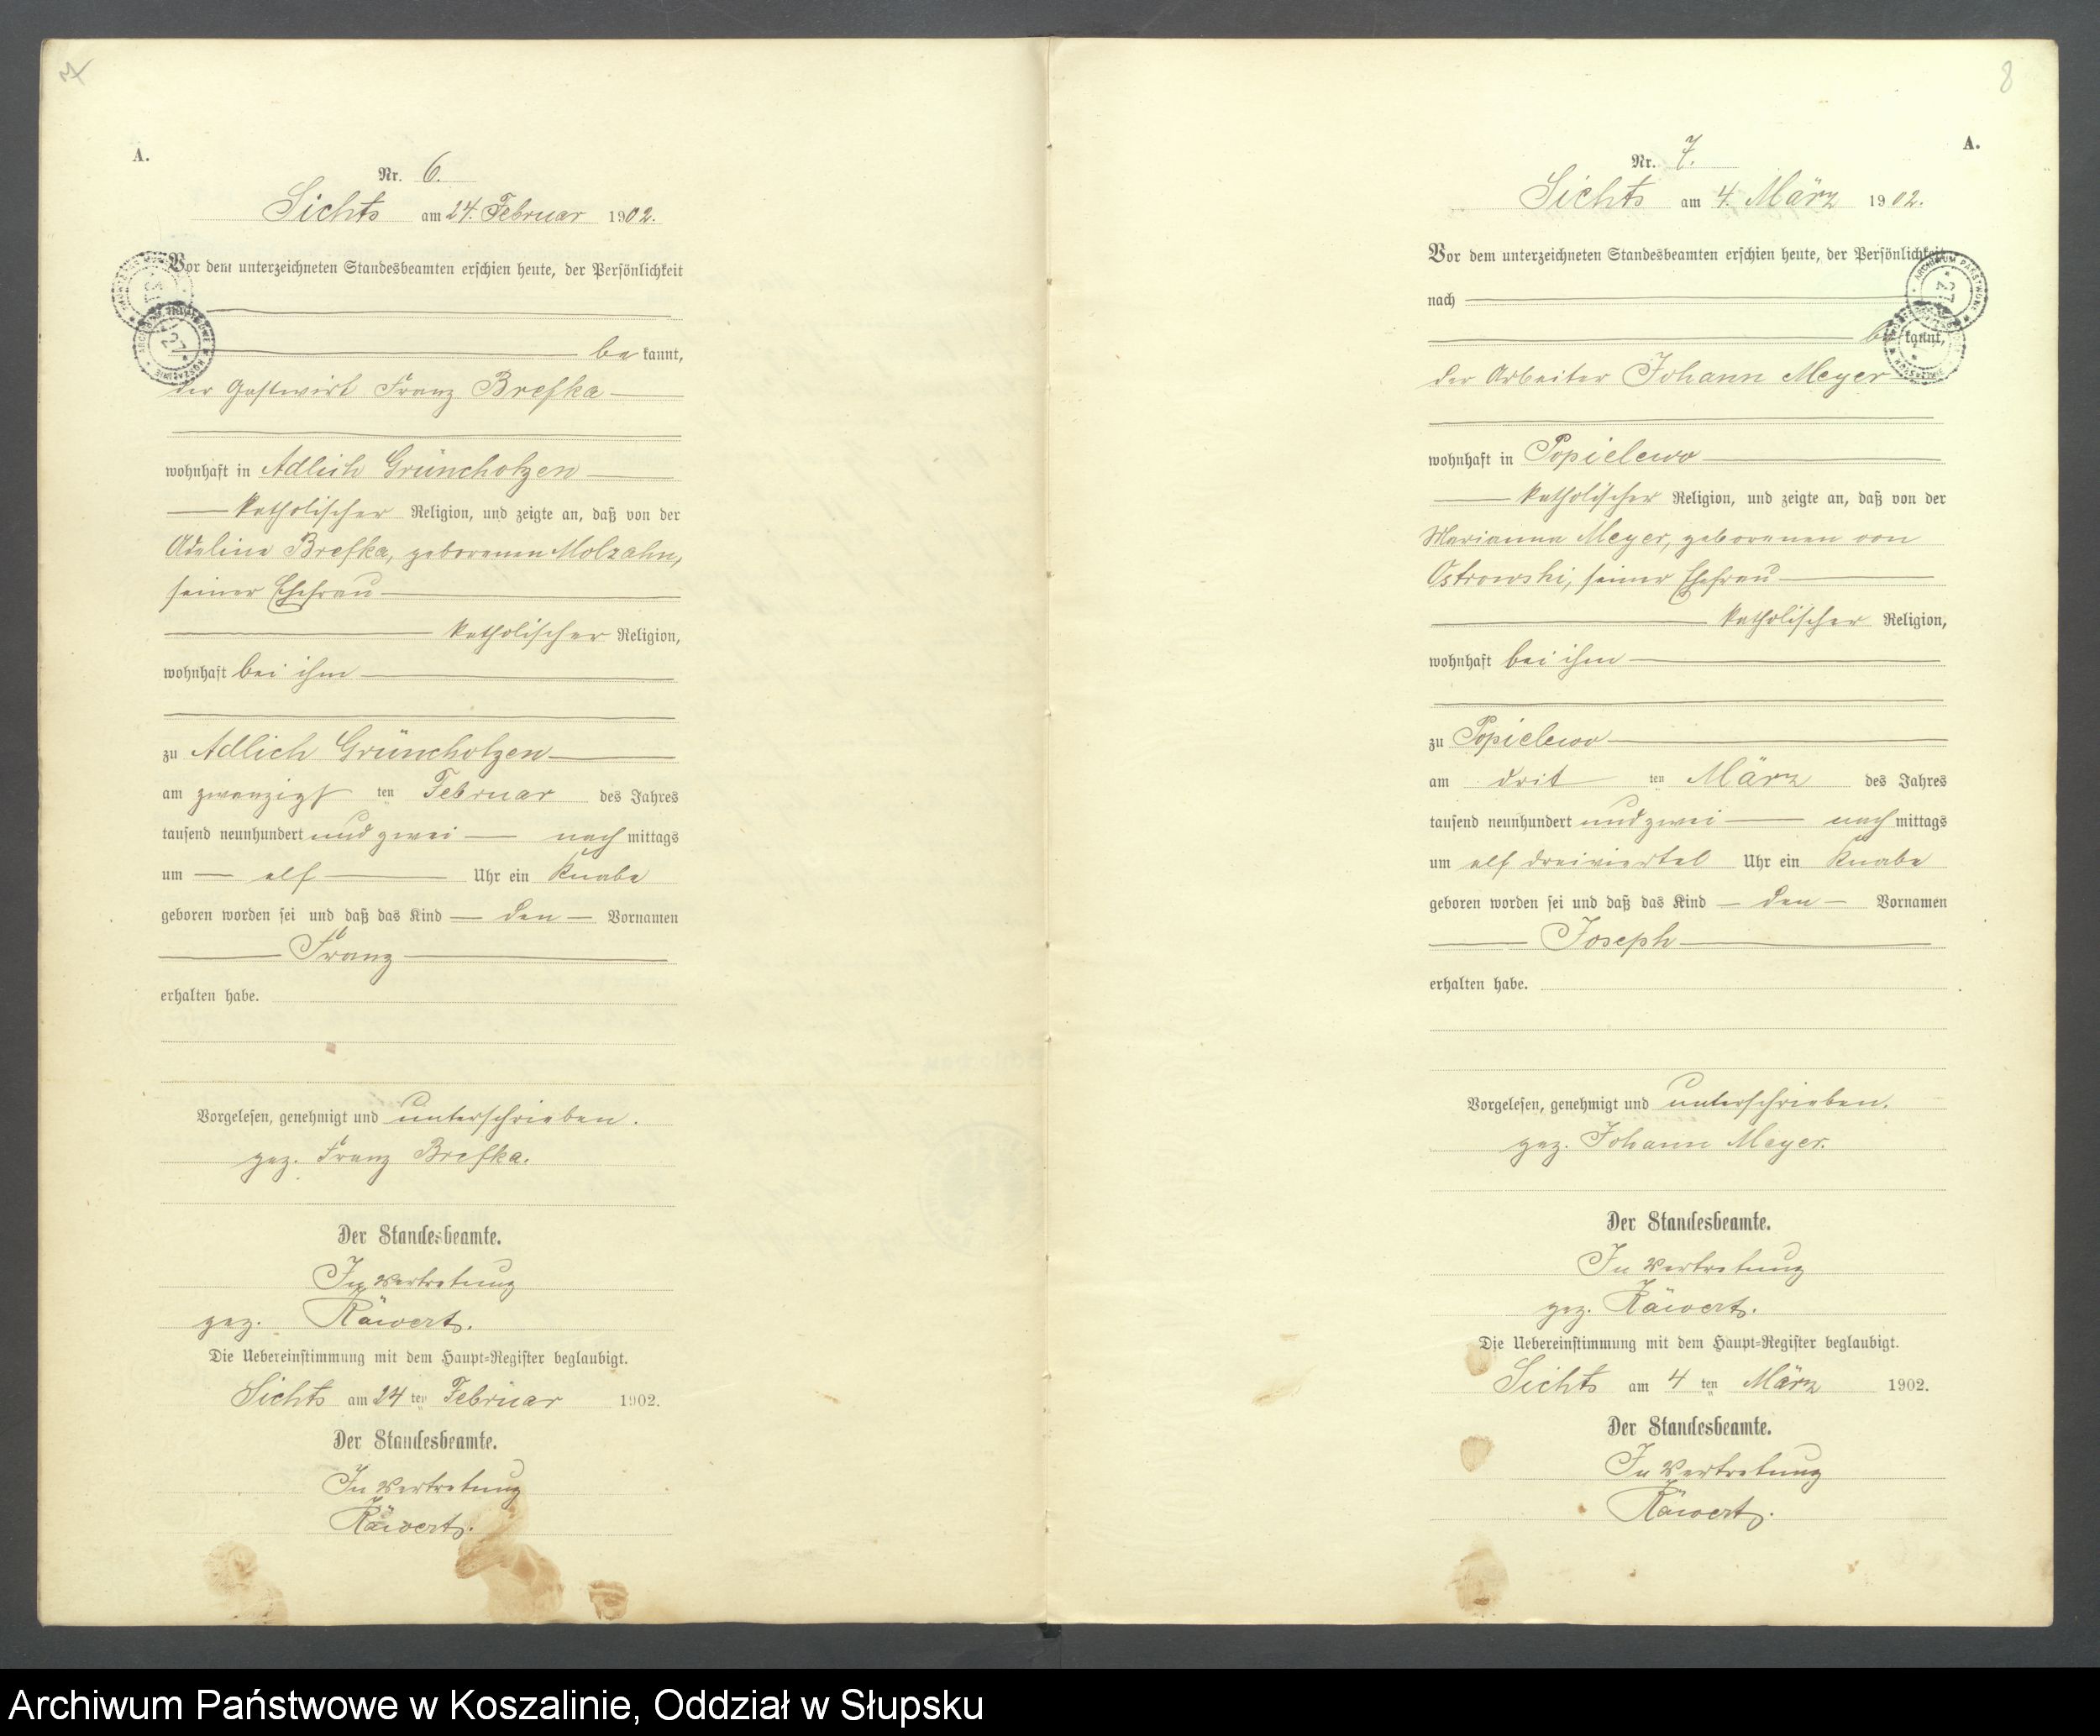 7
A.
Nr. 6.
Sichts am 24. Februar 1902.
Vor dem unterzeichneten Standesbeamten erschien heute, der Persönlichkeit
be kannt,
der Gastwirt Franz Brefka
wohnhaft in Adlich Grünchotzen
katholischer Religion, und zeigte an, daß von der
Adeline Brefka, geborenen Molzahn,
seiner Ehefrau
katholischer Religion,
wohnhaft bei ihm
zu Adlich Grünchotzen
am zwanzigst ten Februar des Jahres
tausend neunhundert und zwei nach mittags
um elf Uhr ein Knabe
geboren worden sei und daß das Kind den Vornamen
Franz
erhalten habe.
Vorgelesen, genehmigt und unterschrieben.
gez. Franz Brefka.
Der Standesbeamte.
In Vertretung
gez. Räwert.
Die Uebereinstimmung mit dem Haupt-Register beglaubigt.
Sichts am 24 ten Februar 1902.
Der Standesbeamte.
In Vertretung
Räwert.
8
A.
Nr. 7.
Sichts am 4. März 1902.
Vor dem unterzeichneten Standesbeamten erschien heute, der Persönlichkeit
nach
be kannt,
der Arbeiter Johann Meyer
wohnhaft in Popielewo
katholischer Religion, und zeigte an, daß von der
Marianna Meyer, geborenen von
Ostrowski, seiner Ehefrau
katholischer Religion,
wohnhaft bei ihm
zu Popielewo
am drit ten März des Jahres
tausend neunhundert und zwei nach mittags
um elf dreiviertel Uhr ein Knabe
geboren worden sei und daß das Kind den Vornamen
Joseph
erhalten habe.
Vorgelesen, genehmigt und unterschrieben.
gez. Johann Meyer.
Der Standesbeamte.
In Vertretung
gez. Räwert.
Die Uebereinstimmung mit dem Haupt-Register beglaubigt.
Sichts am 4 ten März 1902.
Der Standesbeamte.
In Vertretung
Räwert.
Archiwum Państwowe w Koszalinie, Oddział w Słupsku